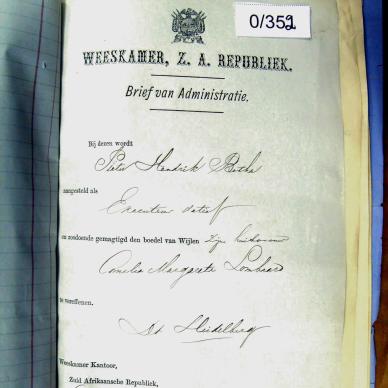 0/352
WEESKAMER, Z. A. REPUBLIEK.
Brief van Administratie.
Bij dezen wordt
Pieter Hendrik Botha
aangesteld als
Executeur datief
en zoodoende gemagtigd den boedel van Wijlen zijne huisvrouw
Cornelia Margareta Lombaard
te vereffenen.
Heidelberg
Weeskamer Kantoor,
Zuid Afrikaansche Republiek,